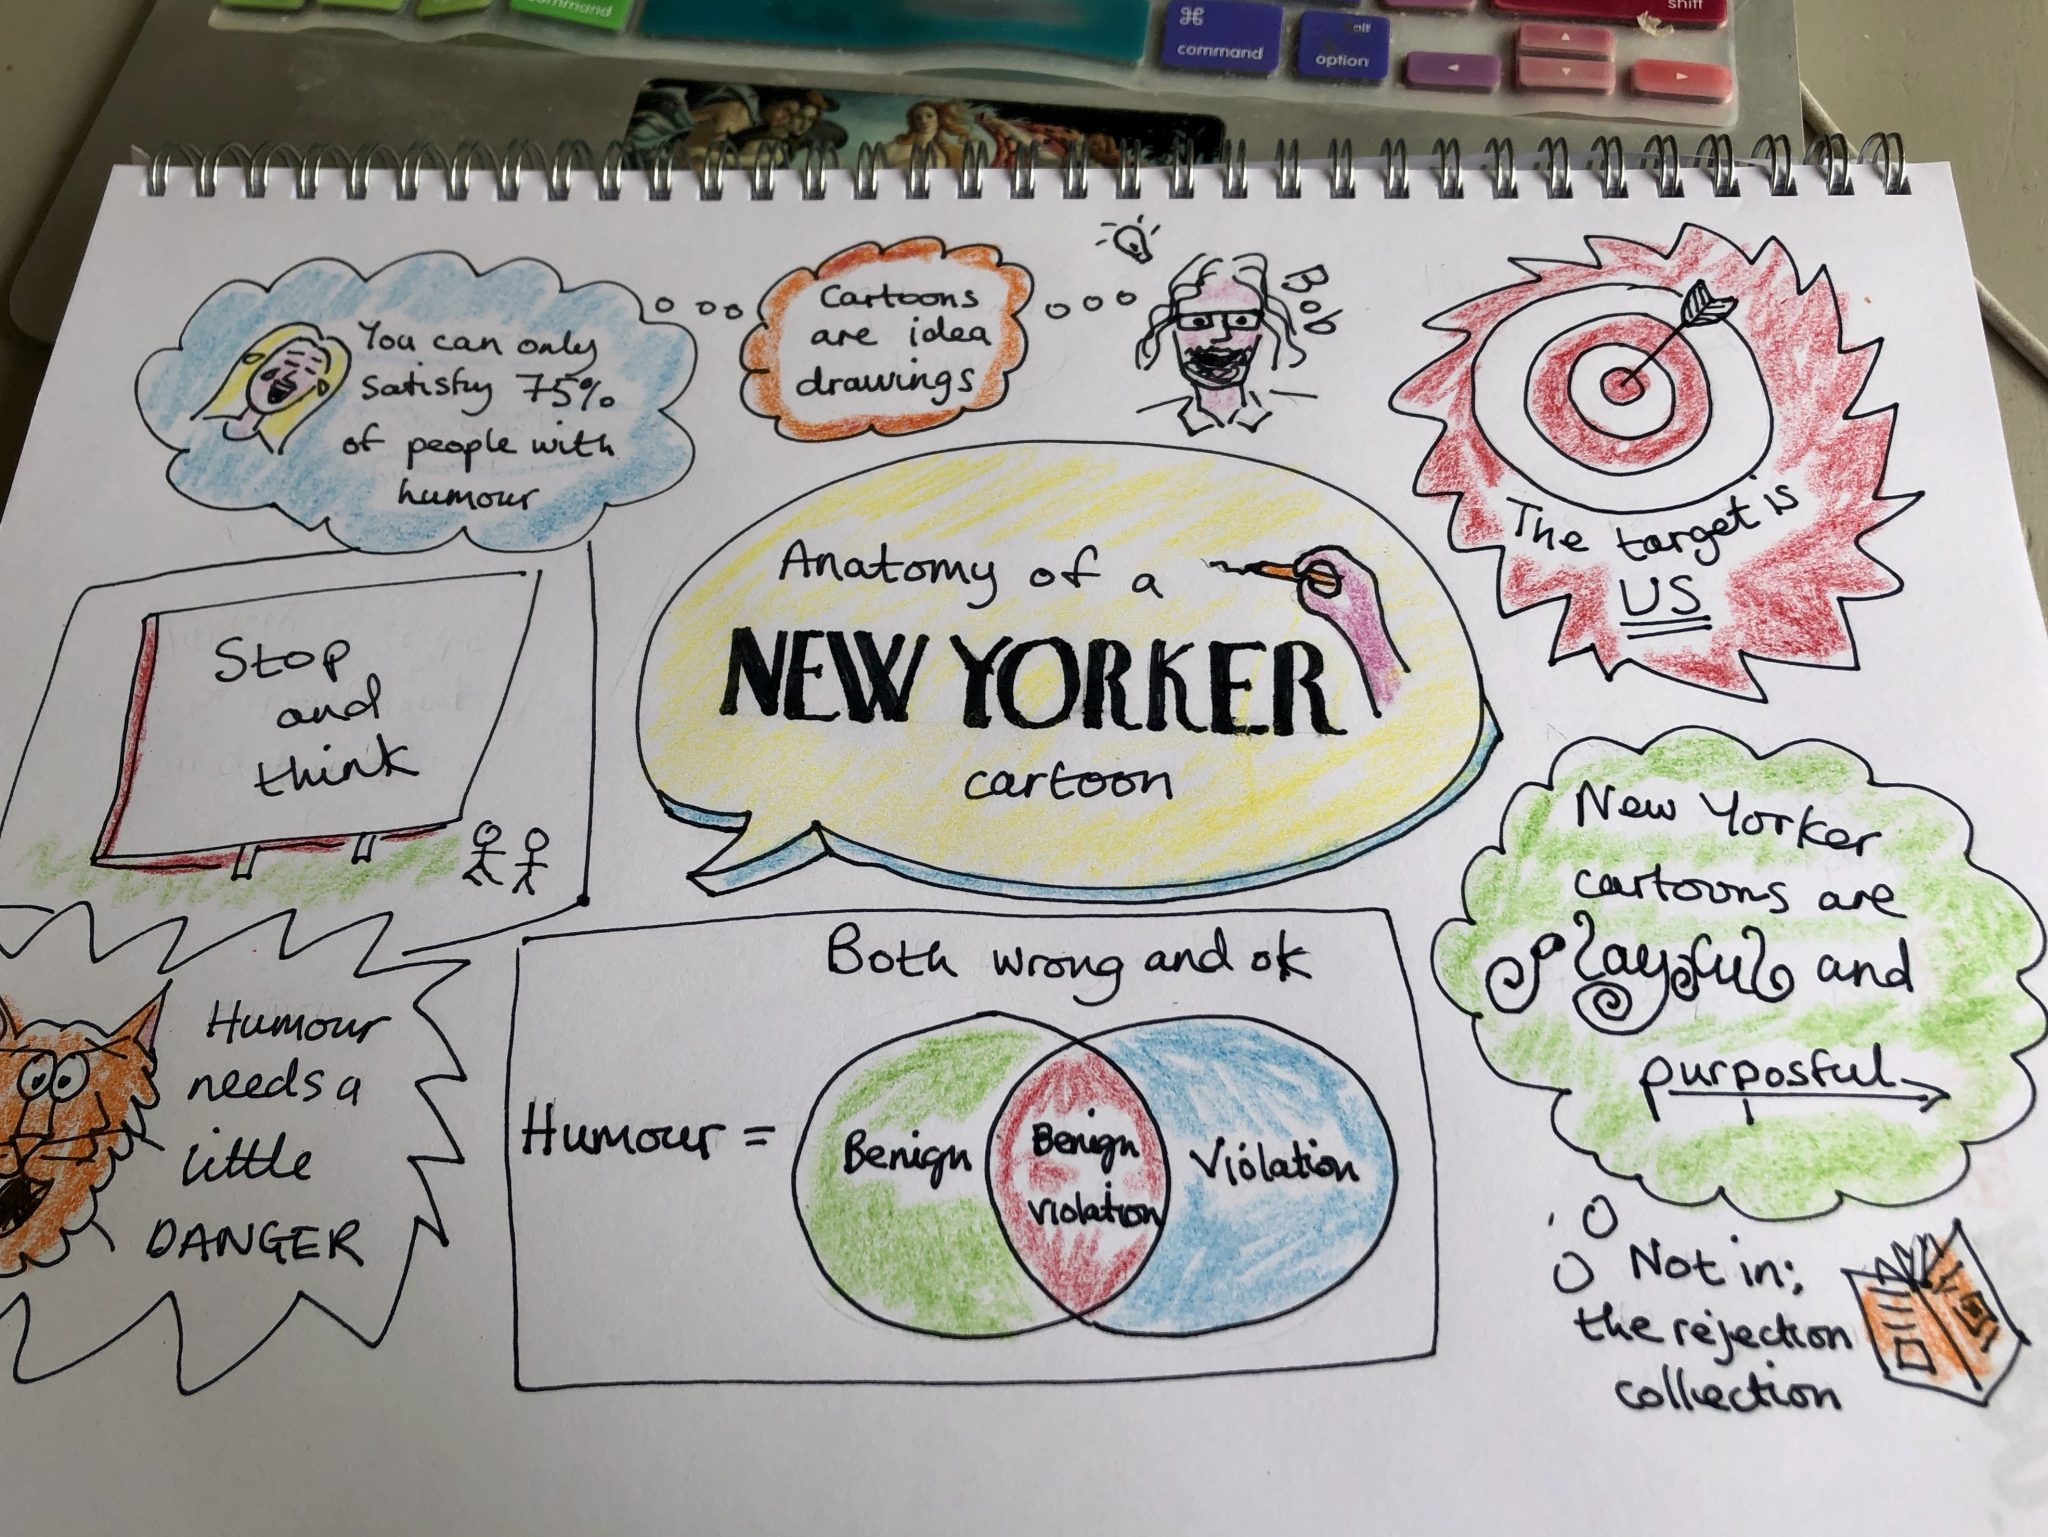 command
⌘
command
alt
option
shift
You can only
satisfy 75%
of people with
humour
Cartoons
are idea
drawings
Bob
The target is
US
Anatomy of a
NEW YORKER
cartoon
Stop
and
think
New Yorker
cartoons are
playful and
purposful
Humour
needs a
little
DANGER
Both wrong and ok
Humour =
Benign
Benign
violation
Violation
Not in;
the rejection
collection